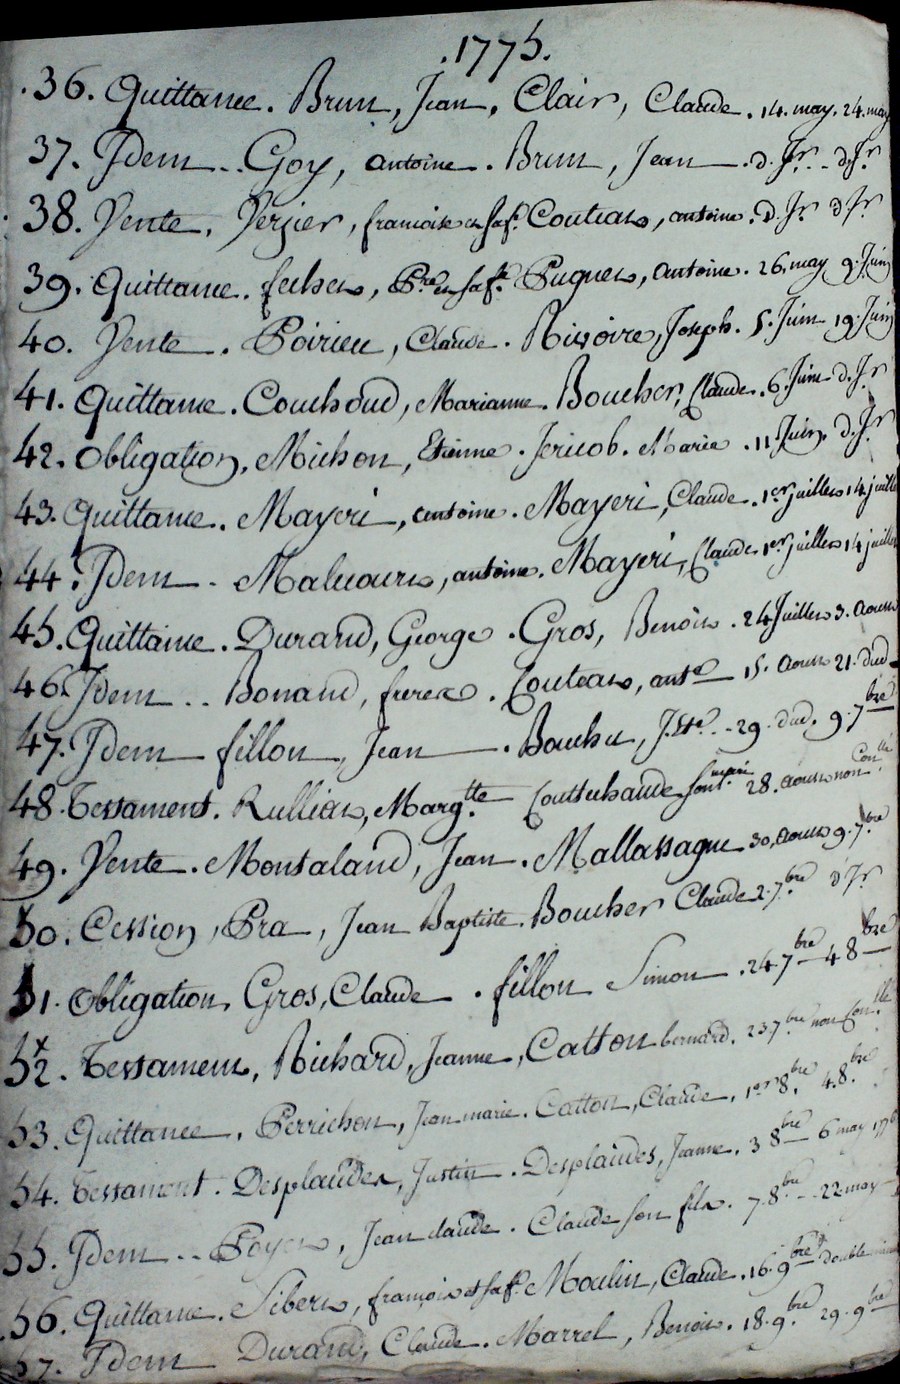 .1775.
.36. Quittance. Brun, Jean. Clair, Claude. 14. may. 24. may
37. Idem.. Goy, antoine. Brun, Jean. d. Jr.. d. Jr
38. Vente. Verjier, francoise et sa fe. Couteaux, antoine. d. Jr d Jr
39. Quittance. , Pre et sa fe. Puguet, antoine. 26. may 9. Juin
40. Vente. Poirieu, Claude. Rivoire, Joseph. 5. Juin 19. Juin
41. Quittance. Couchoud, Marianne. Boucher, Claude. 6. Juin d. Jr
42. obligation. Michon, Etienne. Jericob. Marie. 11. Juin. d. Jr
43. Quittance. Mayeri, antoine. Mayeri, Claude. 1er juillet 14 juillet
44. Idem. , antoine. Mayeri, Claude. 1er juillet 14 juillet
45. Quittance. Durand, George. Gros, Benoit. 24 Juillet 3. aoust
46. Idem.. Bonand, freres. , ante 15. aoust 21. dud
47. Idem fillon, Jean. Bouchu, .. 29. dud. 9. 7bre
48. Testament. Rulliat, Margtte son mari 28. aoust non Conllé
49. Vente. Montaland, Jean. Mallassague 30. aoust 9. 7bre
50. Cession, Pra, Jean Baptiste. Boucher Claude 2. 7bre d Jr
51. obligation. Gros, Claude. fillon Simon. 24 7bre 4 8bre
52. Testament, Richard, Jeanne, Catton bernard. 23 7bre non Conllé
53. Quittance, Perrichon, Jean marie. Catton, Claude, 1er 8bre. 4. 8bre
54. Testament. Desplaudes, Justin. Desplaudes, Jeanne. 3 8bre 6 may 1776
55. Idem.. Poyet, Jean claude. Claude son fils. 7. 8bre.. 22 may
56. Quittance. Sibert, françois et sa fe. Moulin, Claude. 16. 9bre double
57. Idem Durand, Claude. Marrel, Benoit. 18. 9bre 29. 9bre